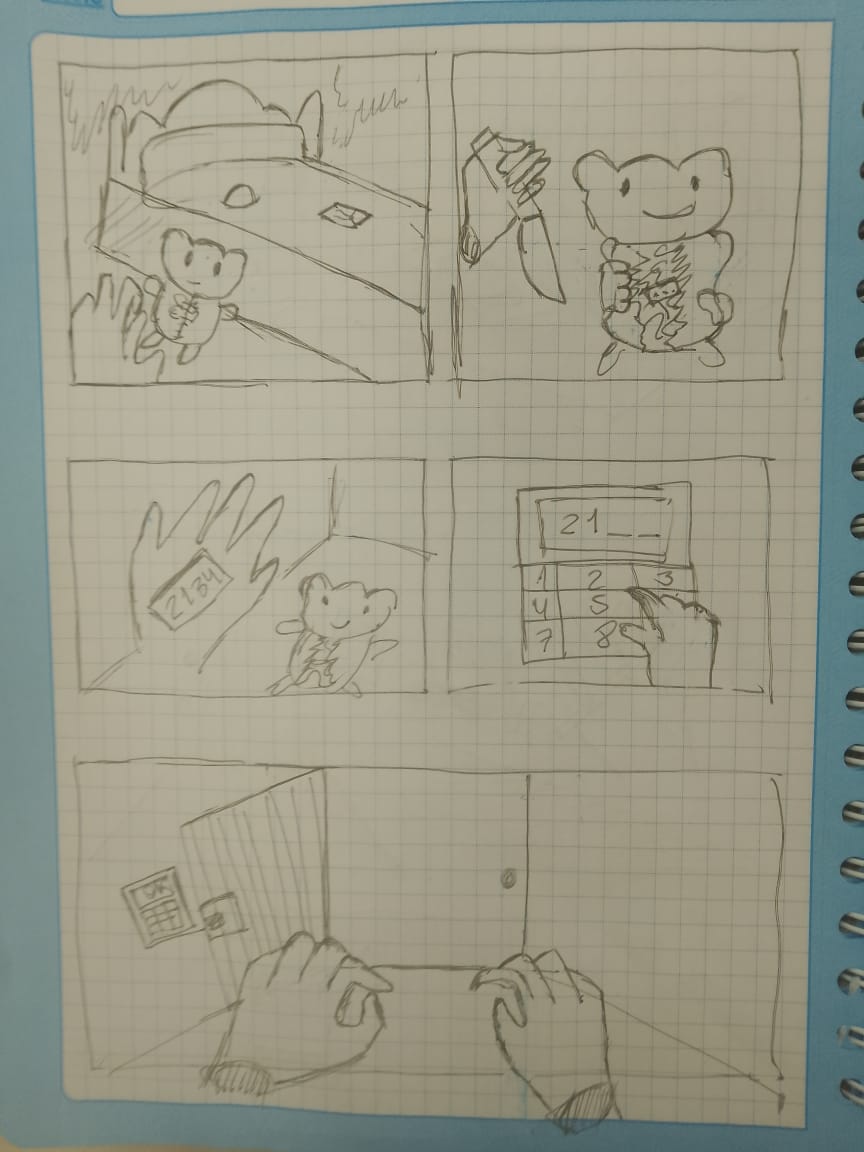 2134
21__
1 2 3
4 5
7 8
OK